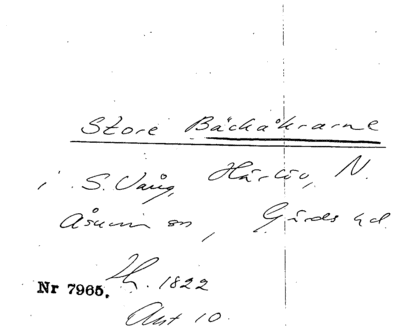 Store Bäckåkrarne
i S. Vång, Härlöv, N.
Åsum sn, Gärds hd.
Nr 7965. Th. 1822
Akt 10.